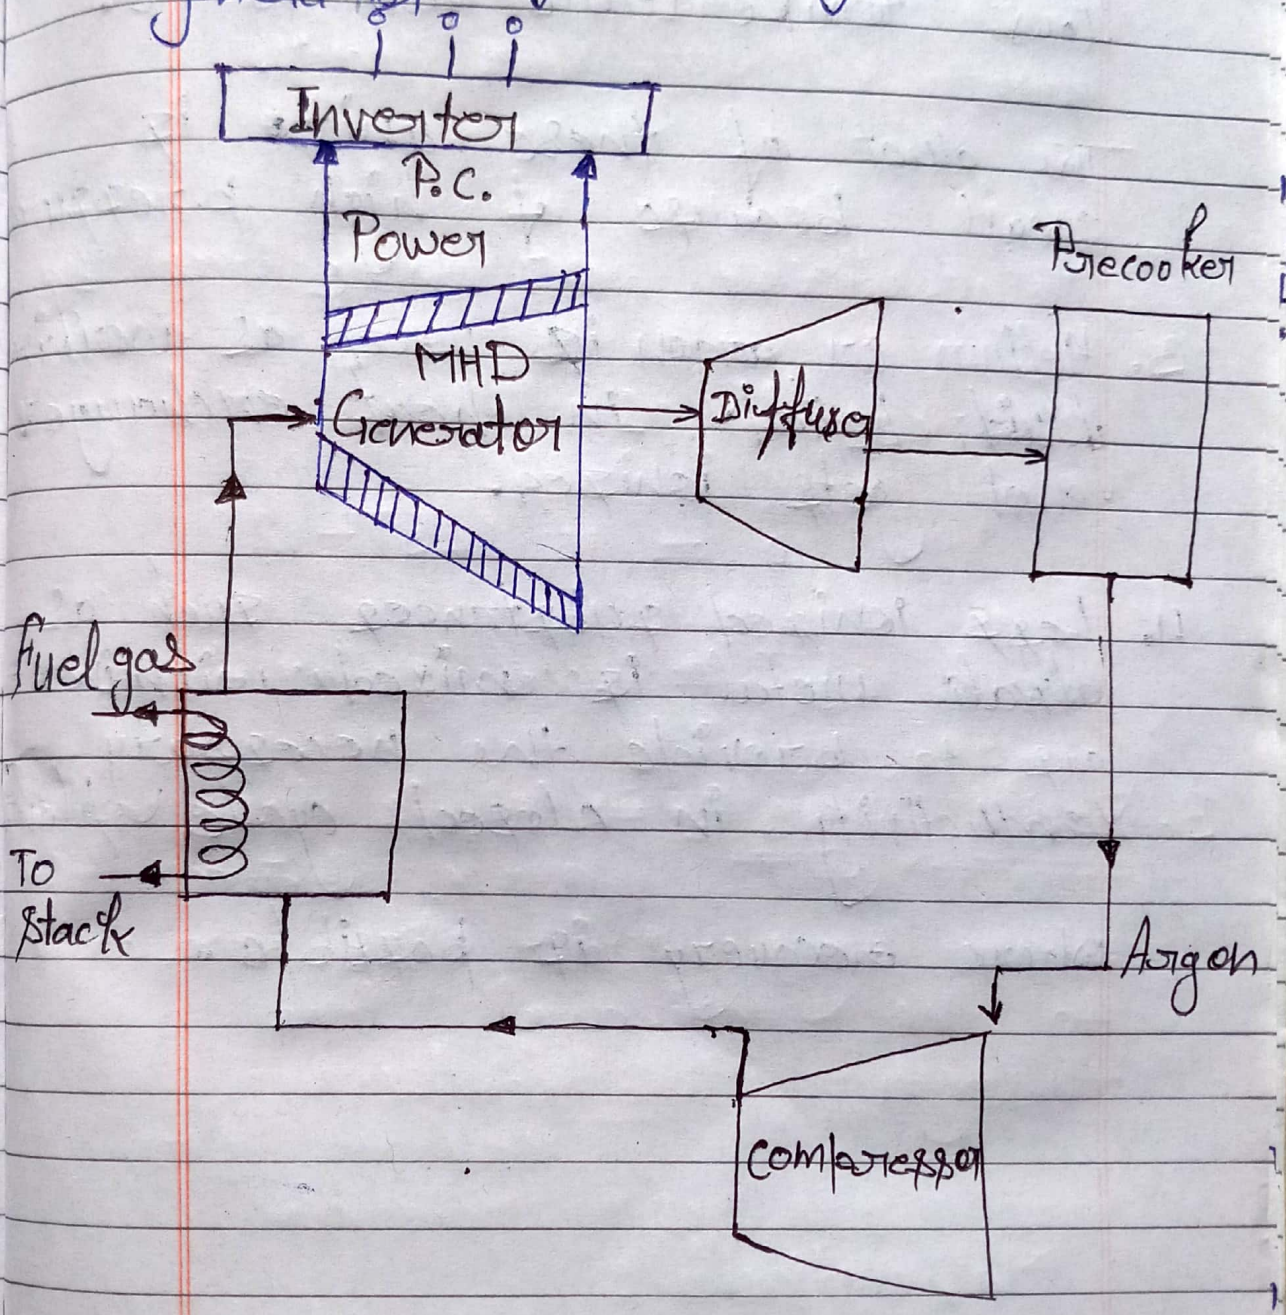 Inverter
P.C.
Power
MHD
Generator
Diffuser
Precooker
Fuel gas
To
stack
Argon
compressor